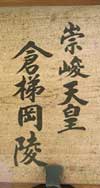 崇峻天皇
倉梯岡陵